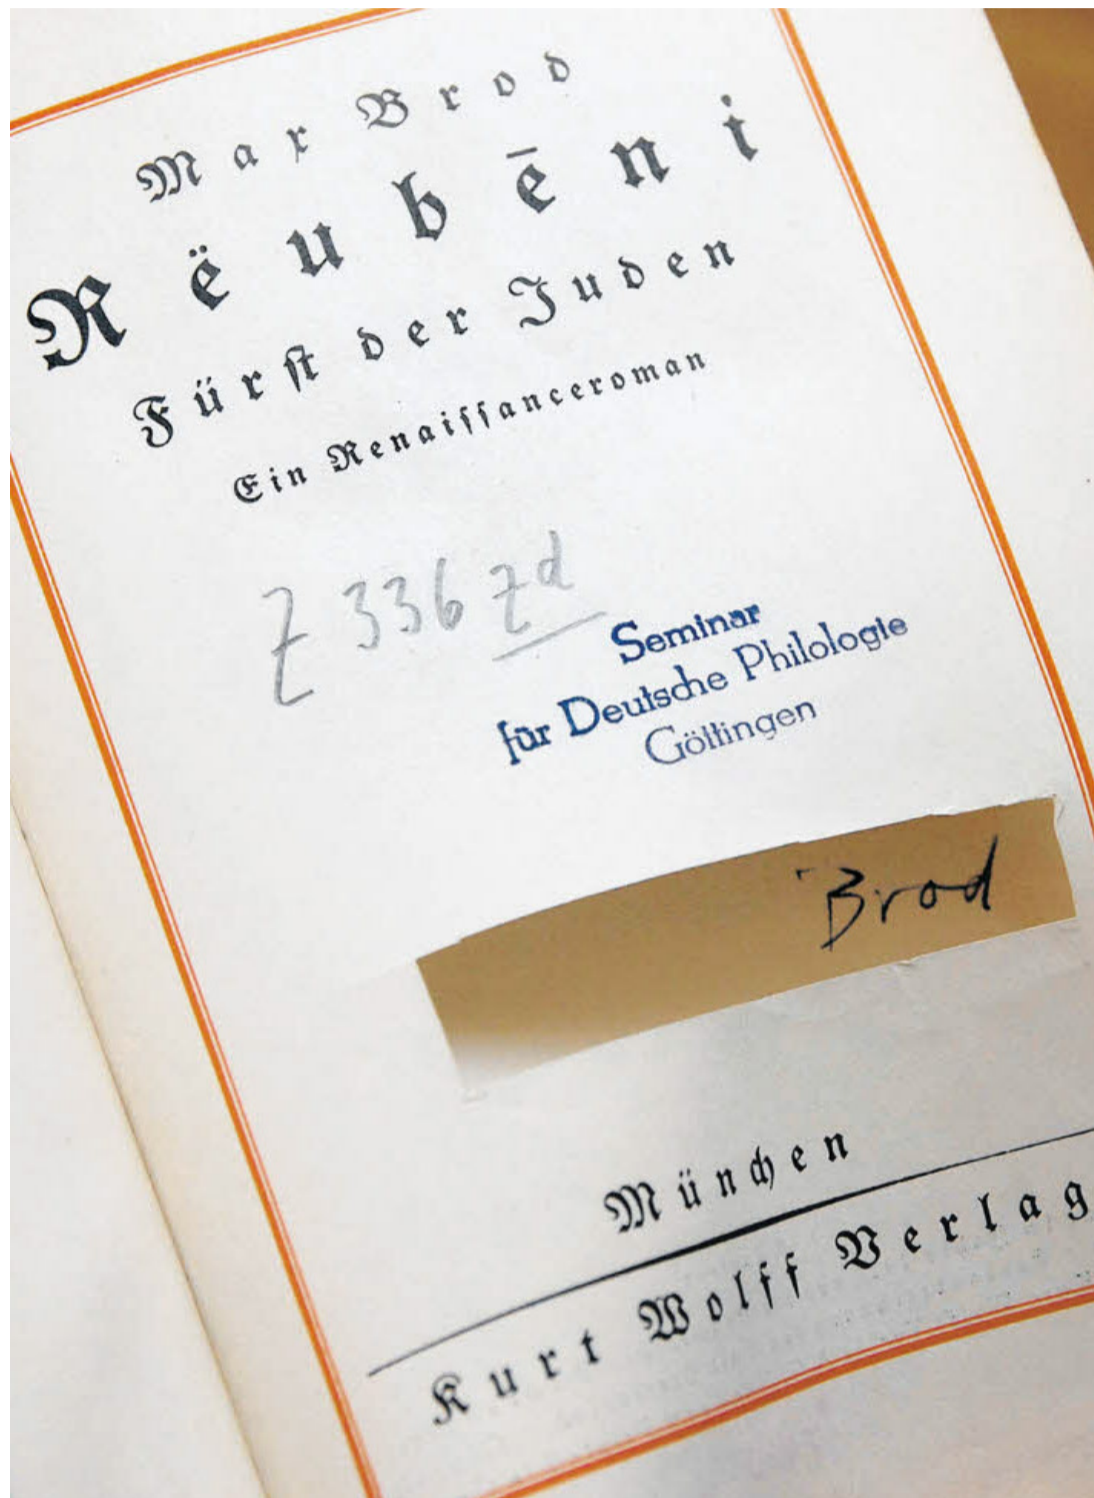 Max Brod
Rëubēni
Fürst der Juden
Ein Renaissanceroman
Z 336 zd
Seminar
für Deutsche Philologie
Göttingen
Brod
München
Kurt Wolff Verlag